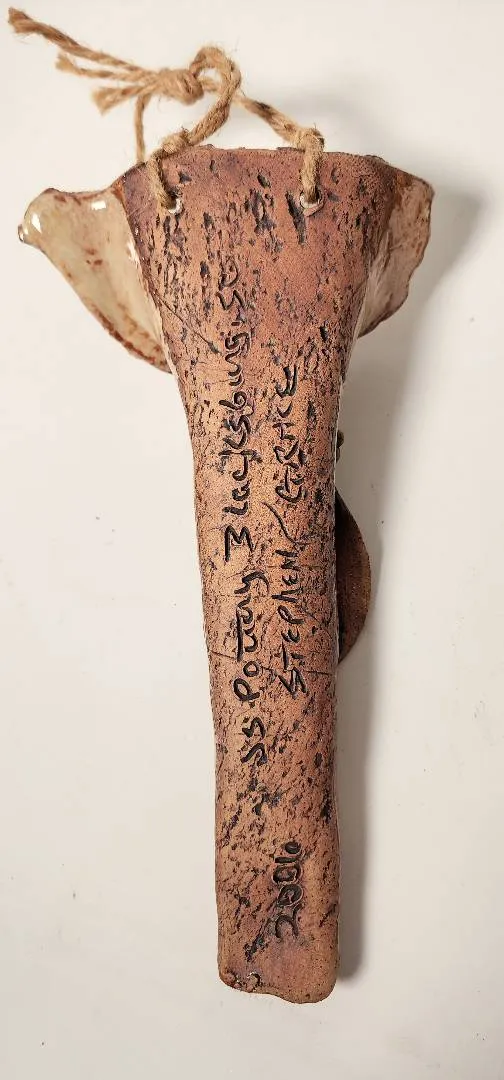 SS Pottery Blacksburg, SC
STEPHEN / GRACE
2006